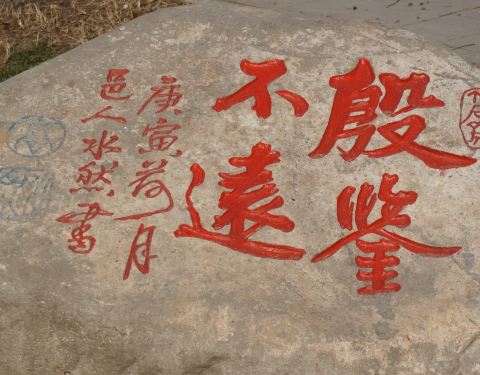 殷鉴
不远
庚寅荷月
邑人水然书